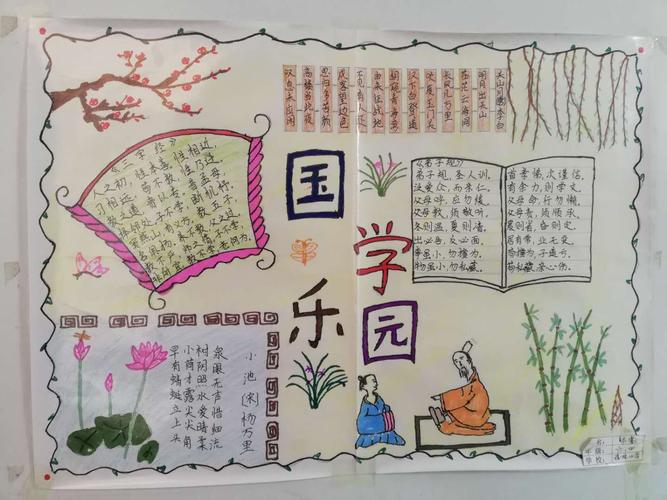 关山月 唐 李白
明月出天山
苍茫云海间
长风几万里
吹度玉门关
汉下白登道
胡窥青海湾
由来征战地
不见有人还
戍客望边邑
思归多苦颜
高楼当此夜
叹息未应闲
《三字经》
人之初，性本善，性相近，
习相远，苟不教，性乃迁，
教之道，贵以专，昔孟母，
择邻处，子不学，断机杼，
窦燕山，有义方，教五子，
名俱扬，养不教，父之过，
教不严，师之惰，子不学，
非所宜，幼不学，老何为。
国
学
乐
园
《弟子规》
弟子规，圣人训，
泛爱众，而亲仁，
父母呼，应勿缓，
父母教，须敬听，
冬则温，夏则凊，
出必告，反必面，
事虽小，勿擅为，
物虽小，勿私藏，
首孝悌，次谨信，
有余力，则学文，
父母命，行勿懒，
父母责，须顺承，
晨则省，昏则定，
居有常，业无变，
苟擅为，子道亏，
苟私藏，亲心伤。
小池 [宋] 杨万里
泉眼无声惜细流
树阴照水爱晴柔
小荷才露尖尖角
早有蜻蜓立上头
年级：
学校：